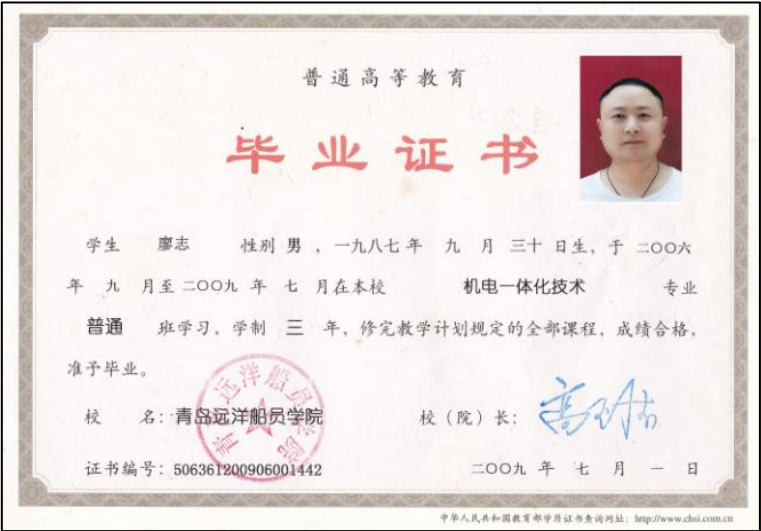 普通高等教育
毕业证书
学生 廖志 性别 男 ，一九八七 年 九 月 三十 日生，于 二〇〇六
年 九 月至 二〇〇九 年 七 月在本校 机电一体化技术 专业
普通 班学习，学制 三 年，修完教学计划规定的全部课程，成绩合格，
准予毕业。
校 名：青岛远洋船员学院 校（院）长：
青岛远洋船员学院
证书编号：506361200906001442 二〇〇九 年 七 月 一 日
中华人民共和国教育部学历证书查询网址：http://www.chsi.com.cn